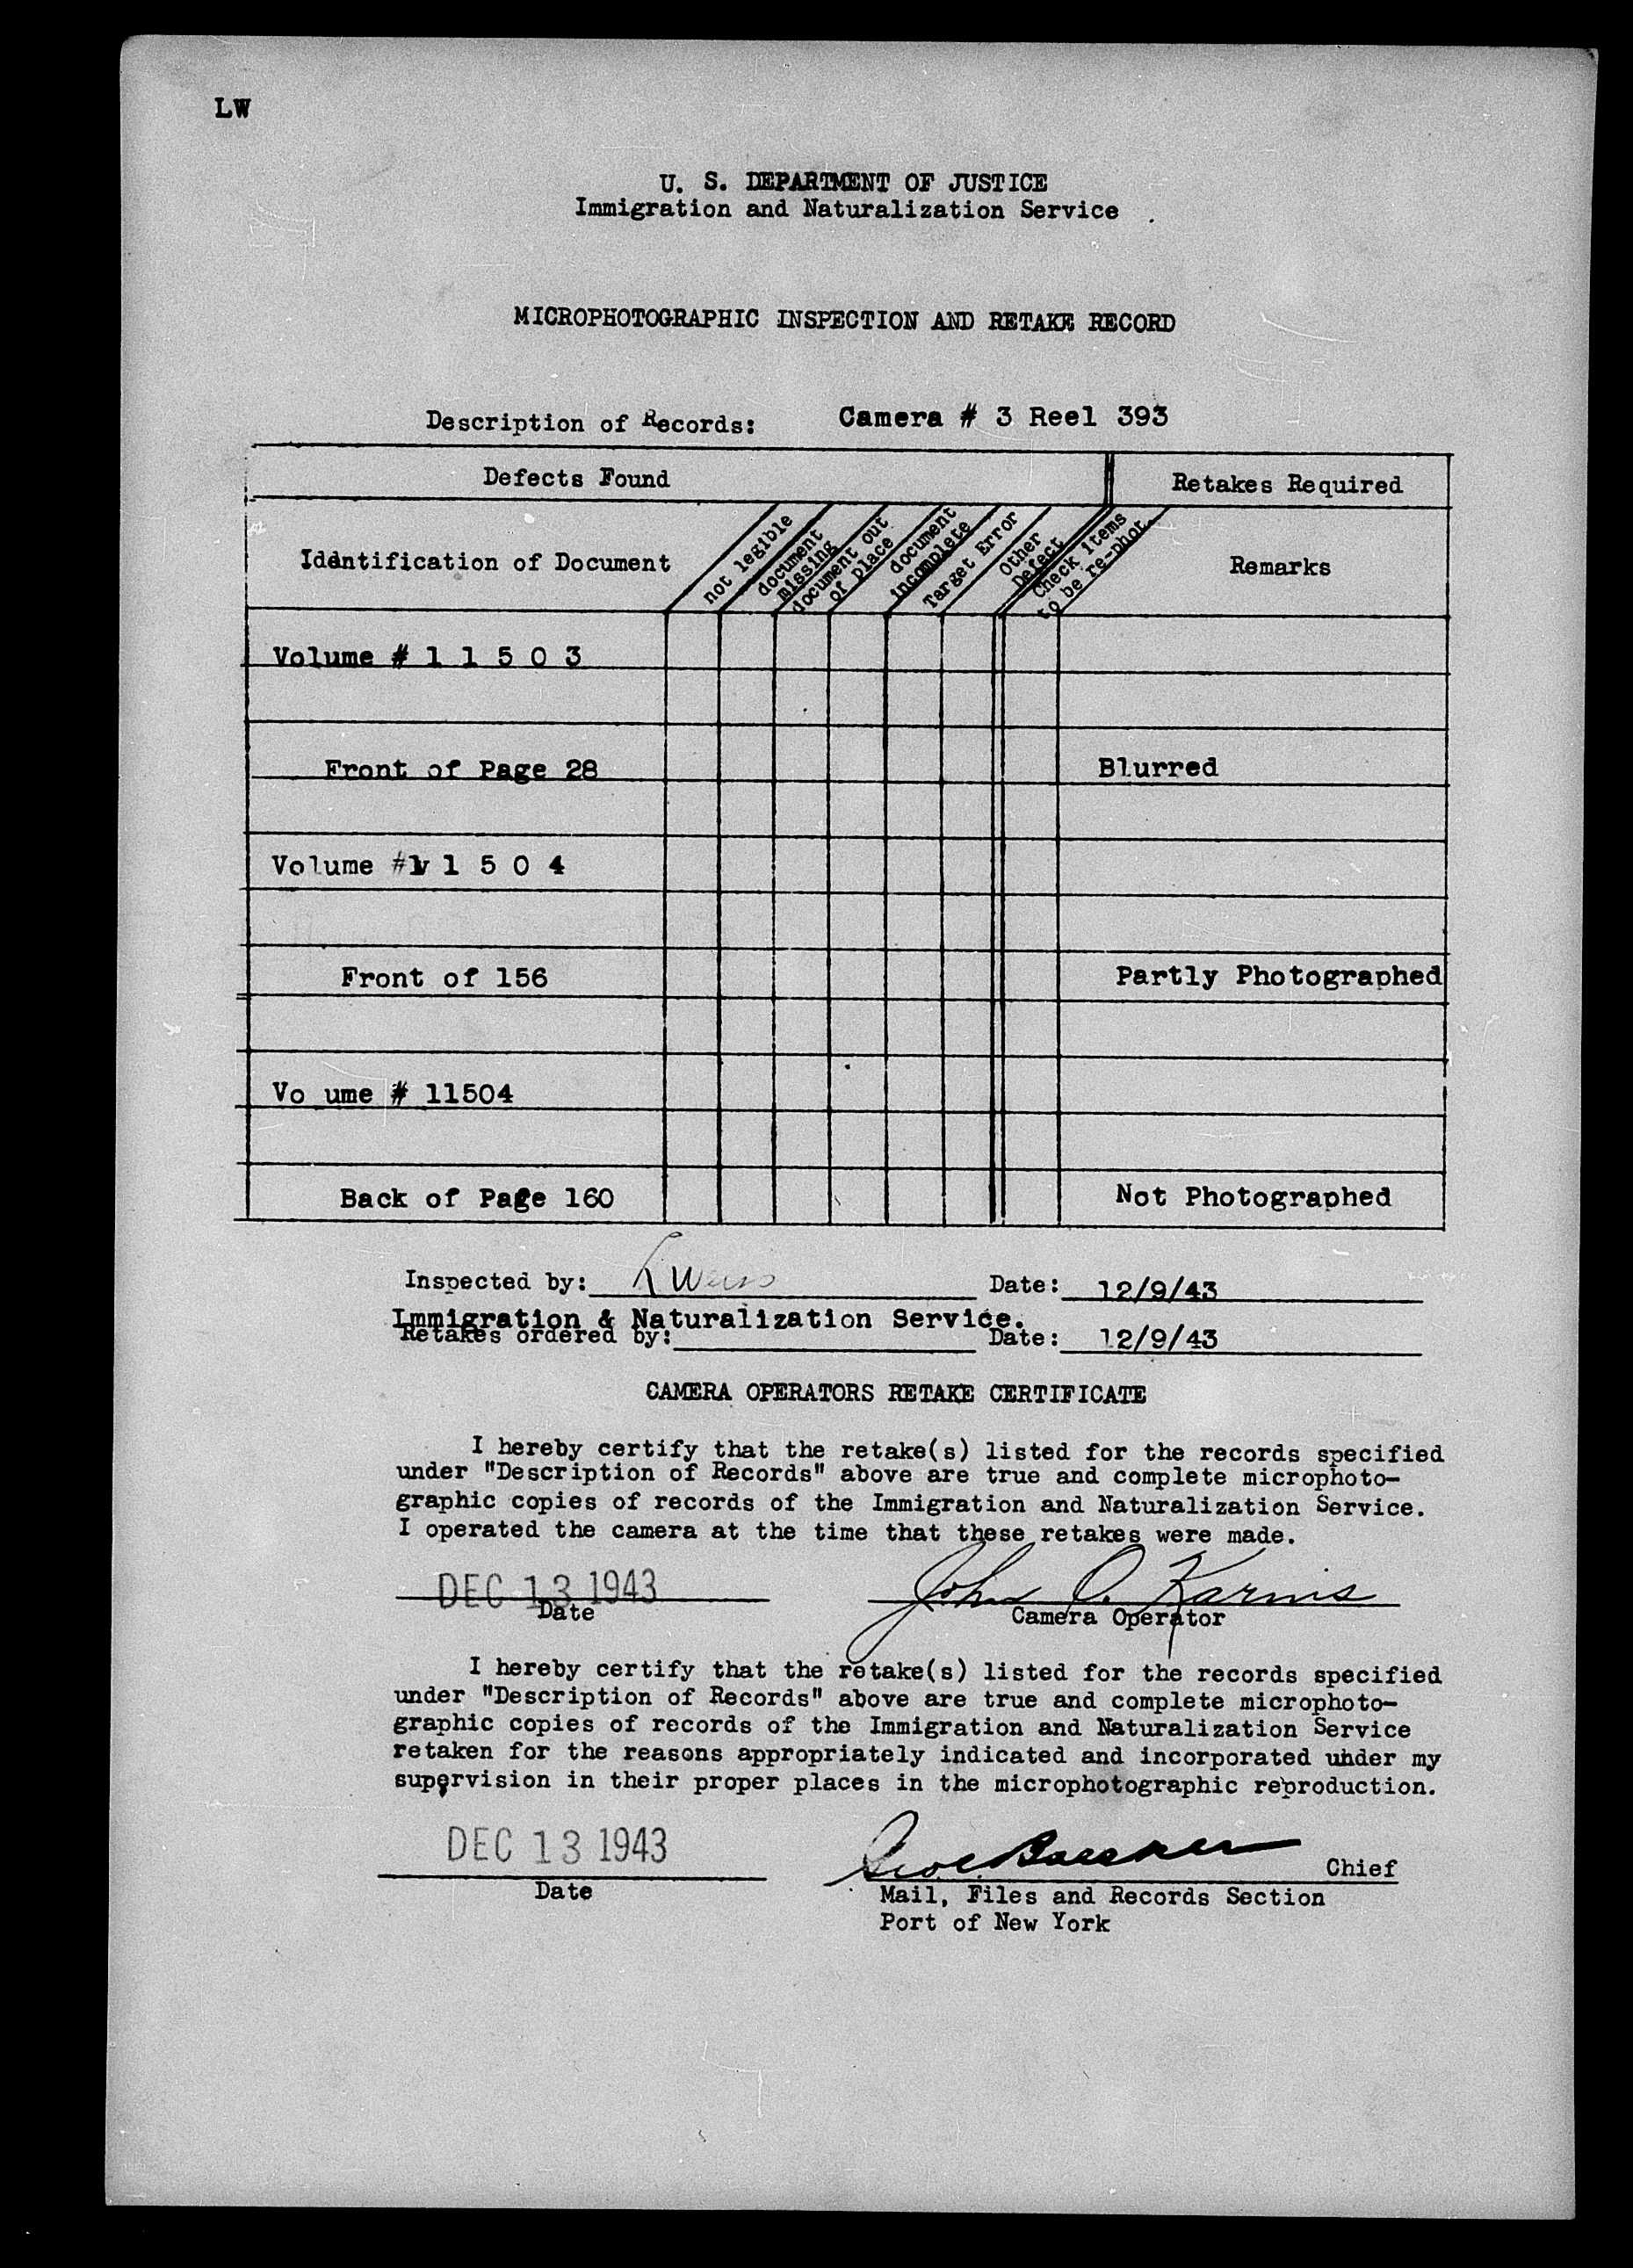 LW
U. S. DEPARTMENT OF JUSTICE
Immigration and Naturalization Service
MICROPHOTOGRAPHIC INSPECTION AND RETAKE RECORD
Description of Records: Camera # 3 Reel 393
Defects Found Retakes Required
Identification of Document
not legible
document missing
document out of place
document incomplete
Target Error
Other Defect
Check items to be re-phot.
Remarks
Volume # 1 1 5 0 3
Front of Page 28 Blurred
Volume #1 1 5 0 4
Front of 156 Partly Photographed
Vo ume # 11504
Back of Page 160 Not Photographed
Inspected by: L Weiss Date: 12/9/43
Immigration & Naturalization Service.
Retakes ordered by: Date: 12/9/43
CAMERA OPERATORS RETAKE CERTIFICATE
I hereby certify that the retake(s) listed for the records specified
under "Description of Records" above are true and complete microphoto-
graphic copies of records of the Immigration and Naturalization Service.
I operated the camera at the time that these retakes were made.
DEC 13 1943 John O. Karins
Date Camera Operator
I hereby certify that the retake(s) listed for the records specified
under "Description of Records" above are true and complete microphoto-
graphic copies of records of the Immigration and Naturalization Service
retaken for the reasons appropriately indicated and incorporated under my
supervision in their proper places in the microphotographic reproduction.
DEC 13 1943 Chief
Date Mail, Files and Records Section
Port of New York